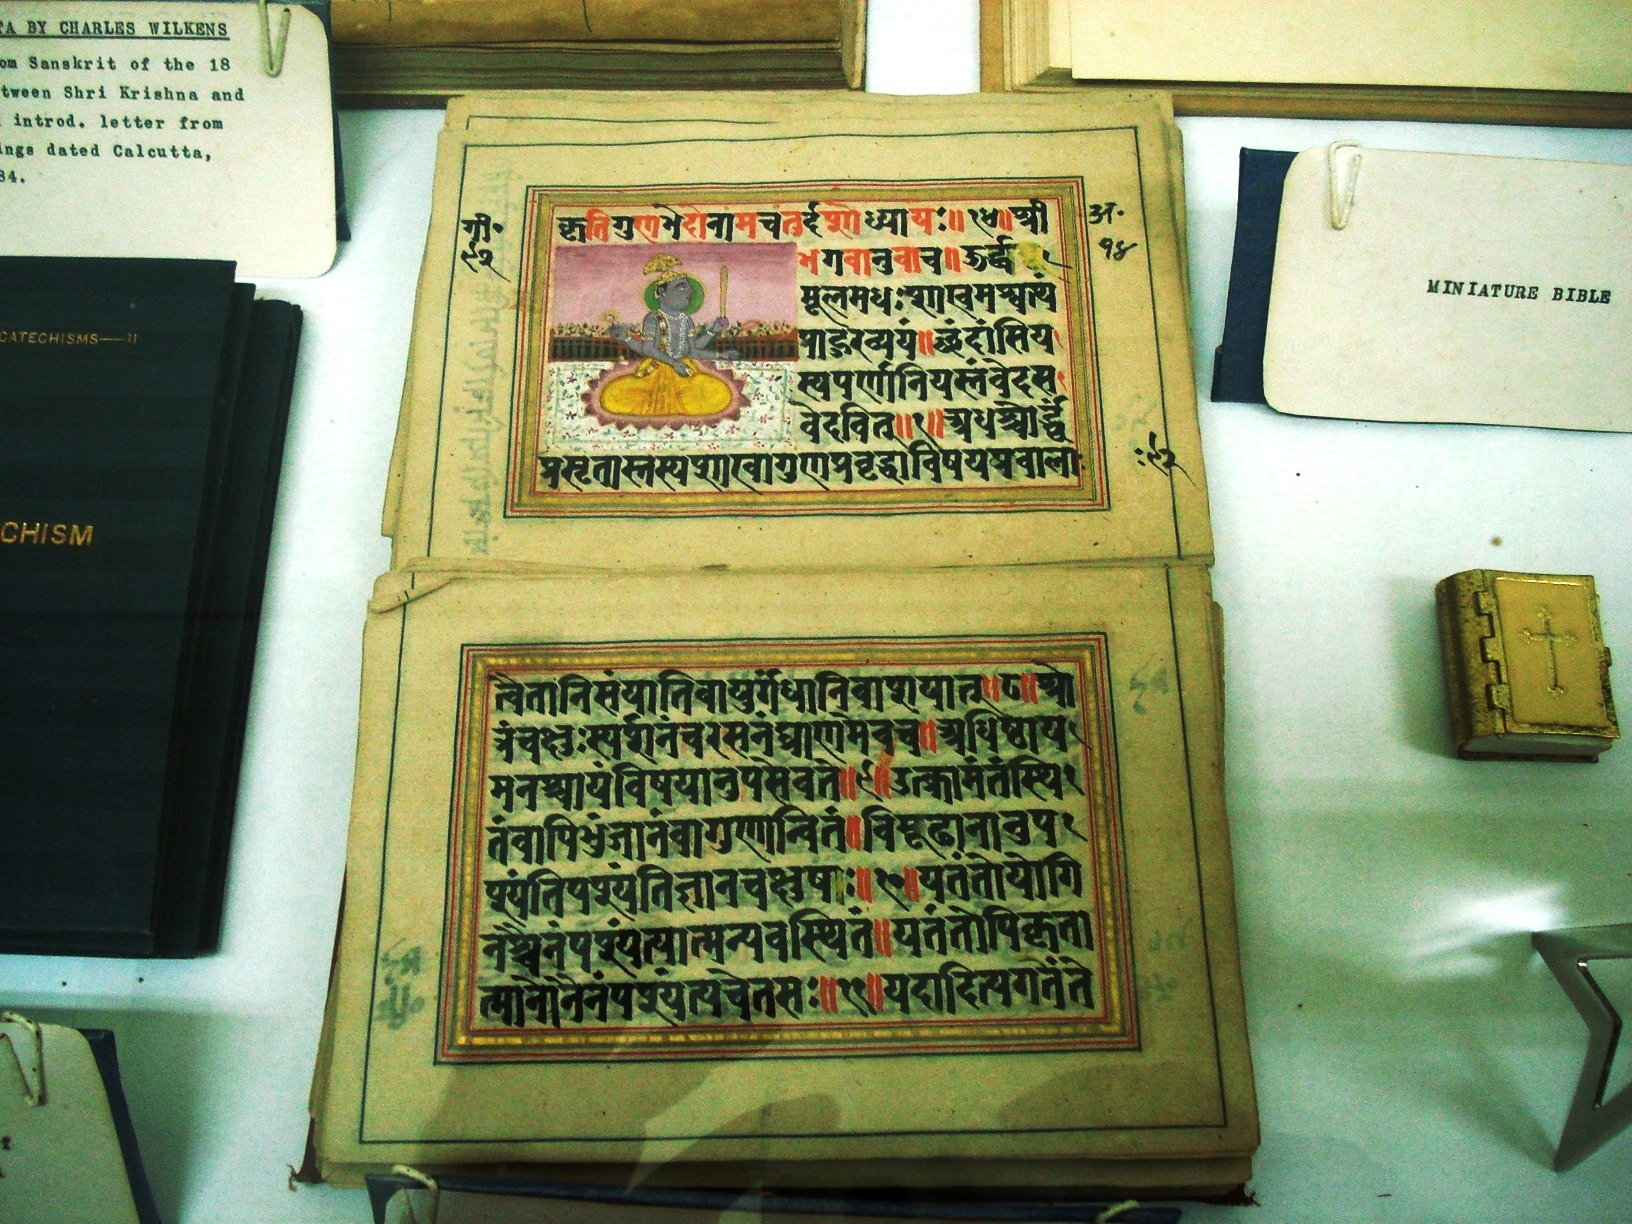 TA BY CHARLES WILKENS
om Sanskrit of the 18
tween Shri Krishna and
introd. letter from
ings dated Calcutta,
84.
CATECHISMS—II
CHISM
गी॰
अ॰
१४
कृतिगुणभेदोनामचतर्दशोध्यायः॥१४॥श्री
भगवानुवाच॥ऊर्द्ध
मूलमधःशाखमश्वत्थं
प्राहुरव्ययं॥छंदांसिय
स्यपर्णानियस्तंवेदस
वेदवित्॥१॥अधश्चोर्द्ध्वं
प्रसृतास्तस्यशाखागुणप्रवृद्धाविषयप्रवालाः
त्वैतानिसंयातिवायुर्गंधानिवाशयात्॥८॥श्रो
त्रंचक्षुःस्पर्शनंचरसनंघ्राणमेवच॥अधिष्ठाय
मनश्चायंविषयानुपसेवते॥९॥उत्क्रामंतंस्थि
तंवापिभुंजानंवागुणान्वितं॥विमूढानानुप
श्यंतिपश्यंतिज्ञानचक्षुषः॥१०॥यतंतोयोगि
नश्चैनंपश्यंत्यात्मन्यवस्थितं॥यतंतोपिकृता
त्मानोनैनंपश्यंत्यचेतसः॥११॥यदादित्यगतंते
MINIATURE BIBLE